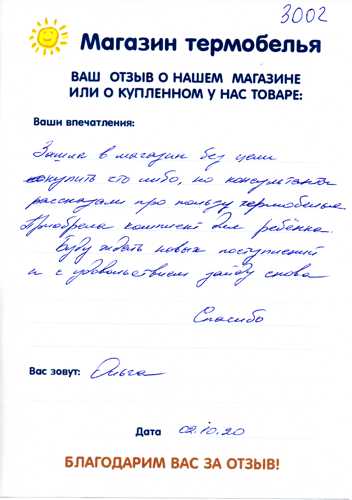 3002
Магазин термобелья
ВАШ ОТЗЫВ О НАШЕМ МАГАЗИНЕ
ИЛИ О КУПЛЕННОМ У НАС ТОВАРЕ:
Ваши впечатления:
Зашла в магазин без цели
покупить что либо, но консультанты
рассказали про пользу термобелья.
Приобрела комплект для ребёнка.
Буду ждать новых поступлений
и с удовольствием зайду снова
Спасибо
Вас зовут: Ольга
Дата 02.10.20
БЛАГОДАРИМ ВАС ЗА ОТЗЫВ!